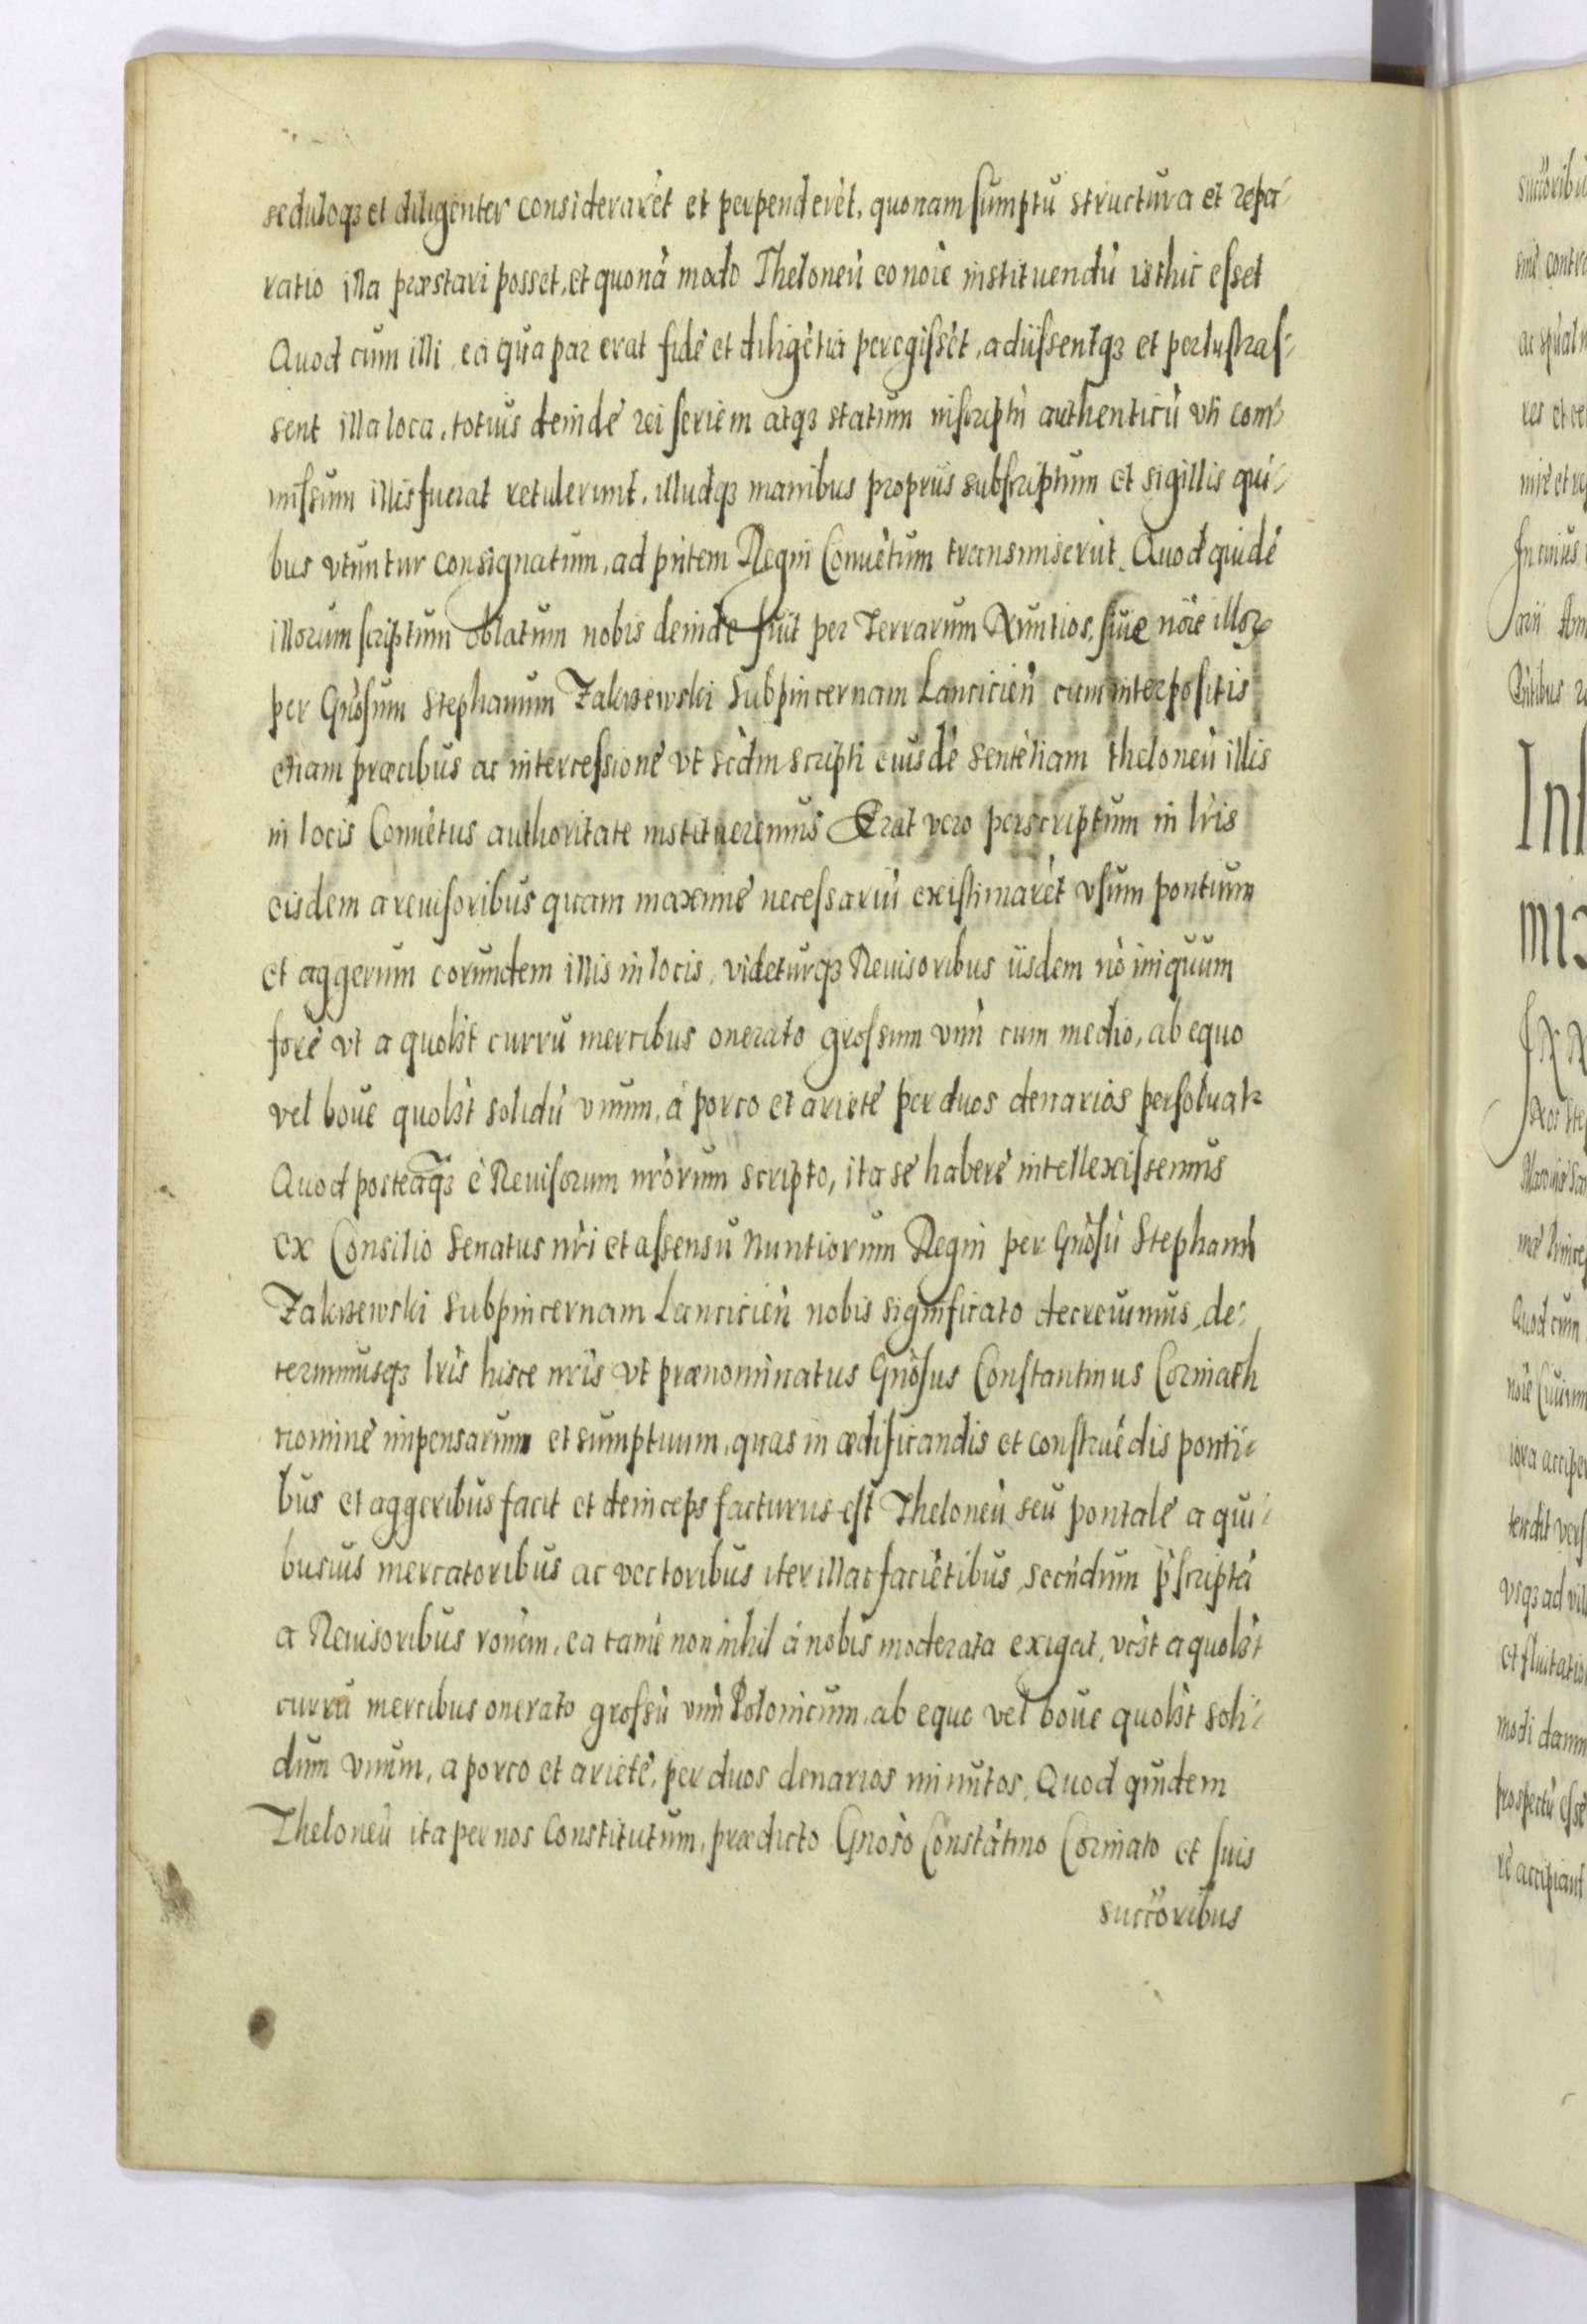 seduloqꝫ et diligenter considerarẽt et perpenderẽt, quonam sumptu structura et repa-
ratio illa præstari posset, et quonã modo Theloneũ eo noĩe instituendũ isthic esset
Quod cum illi, ea qua par erat fide et diligẽtia peregissẽt, adiissentqꝫ et perlustras-
sent illa loca, totius deinde rei seriem atqꝫ statum in scriptũ authenticũ vti com-
missum illis fuerat retulerunt, illudqꝫ manibus propriis subscriptum et sigillis qui-
bus vtuntur consignatum, ad pñtem Regni Conuẽtum transmiserũt. Quod quidẽ
illorum scriptum oblatum nobis deinde fuit per Terrarum Nuntios, siue nõie illoꝝ
per Gñosum Stephanum Zakrzewski Subpincernam Lanciciẽn cum interpositis
etiam præcibus ac intercessione vt scd̃m scripti eiusdẽ sentẽtiam theloneũ illis
in locis Conuẽtus authoritate institueremus Erat vero perscriptum in lr̃is
eisdem a reuisoribus quam maxime necessariũ existimarẽt vsum pontium
et aggerum eorundem illis in locis, videturqꝫ Reuisoribus iisdem nõ iniquum
fore vt a quolꝫt curru mercibus onerato grossum vnũ cum medio, ab equo
vel boue quolꝫt solidũ vnum, á porco et ariete per duos denarios persoluatr
Quod posteaqꝫ è Reuisorum nr̃orum scripto, ita se habere intellexissemus
ex Consilio Senatus nr̃i et assensu Nuntiorum Regni per Gñosũ Stephanũ
Zakrzewski Subpincernam Lanciciẽn nobis significato decreuimus, de-
terminusqꝫ lr̃is hisce nr̃is vt prænominatus Gñosus Constantinus Corniath
nomine impensarum et sumptuum, quas in ædificandis et construẽdis ponti-
bus et aggeribus facit et deinceps facturus est Theloneũ seu pontale a qui-
busuis mercatoribus ac vectoribus iter illac faciẽtibus, secũdum p̃scriptã
a Reuisoribus rõnem, ea tamẽ non nihil á nobis moderata exigat, vꝫt a quolꝫt
curru mercibus onerato grossũ vnũ Polonicum, ab equo vel boue quolꝫt soli-
dum vnum, a porco et ariete, per duos denarios minutos. Quod quidem
Theloneũ ita per nos Constitutum, prædicto Gñoso Cõnstãtino Corniato et suis
succõribus